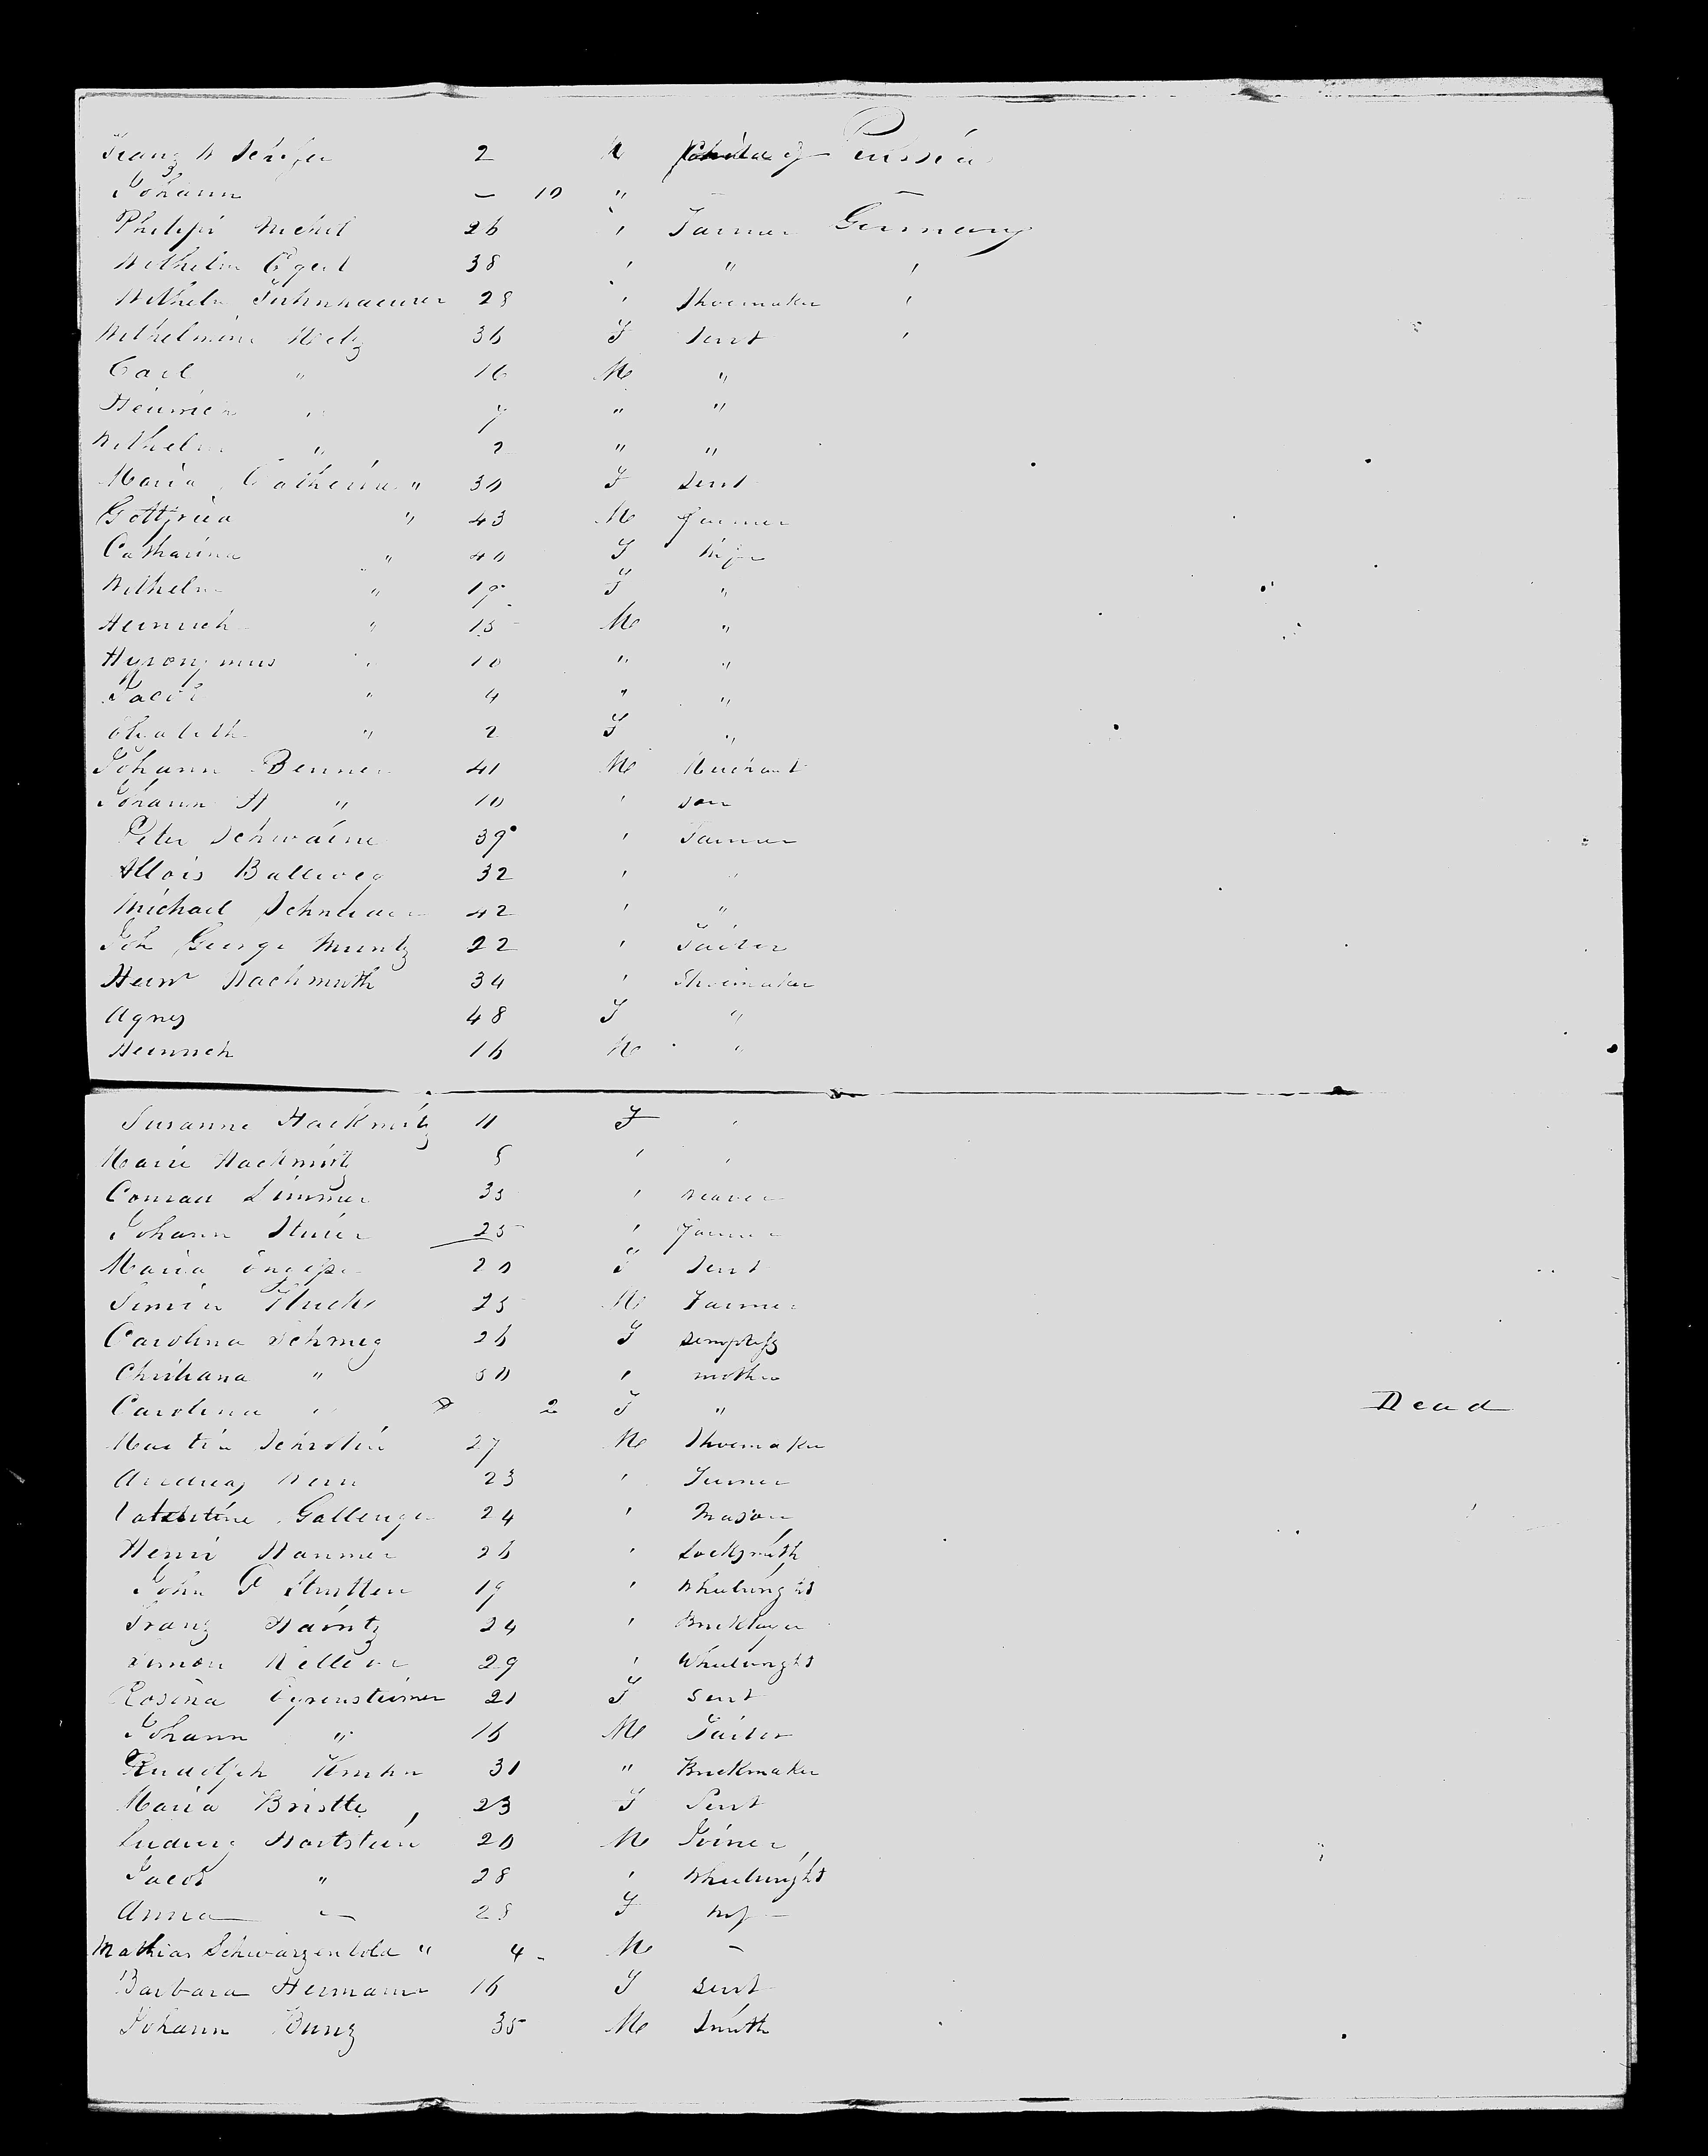 Franz W Schifer 2 M Child of Prussia
Johann — 10 "
Philipp Michel 26 ' Farmer Germany
Wilhelm Egert 38 ' " '
Wilhelm 28 ' Shoemaker '
Wilhelmine Hotz 36 F Servt '
Carl " 16 M "
Heinrich " 7 " "
Wilhelm " 2 " "
Maria Catherina " 30 F Servt
Gottfried " 43 M farmer
Catharina " 40 F Wife
Wilhelm " 19 F "
Heinrich " 15 M "
Hyronymus " 10 " "
Jacob " 4 " "
Elisabeth " 2 F "
Johann Benner 41 M Merchant
Johann H " 10 ' son
Peter Schwaine 39 ' Farmer
Alois Ballweg 32 ' "
Michael Schneider 42 ' "
Joh George Muntz 22 ' Tailor
Heinr Hachmuth 34 ' Shoemaker
Agnes 48 F "
Heinrich 16 M "
Susanne Hackmutz 11 F '
Marie Hackmutz 5 ' '
Conrad Zimmer 35 ' weaver
Johann 25 ' farmer
Maria 20 F Servt
Simon Fluchs 25 M Farmer
Carolina Schmeg 26 F
Christiana " 50 ' mother
Carolina " 2 F " Dead
Martin 27 M Shoemaker
Andreas Kern 23 ' Turner
Valentine Gallenger 24 ' Mason
Henri Hammer 26 ' Locksmith
John F 19 ' Wheelwright
Franz Havritz 24 ' Bricklayer
Simon 29 ' Wheelwright
Rosina 21 F Servt
Johann " 16 M Tailor
Rudolph 31 " Brickmaker
Maria Bristle 23 F Servt
Ludwig Hartstein 20 M Joiner
Jacob " 28 ' Wheelwright
Anna " 28 F wife
Mathias Schwarzenbold " 4 M —
Barbara Hermann 16 F Servt
Johann Bunz 35 M Smith